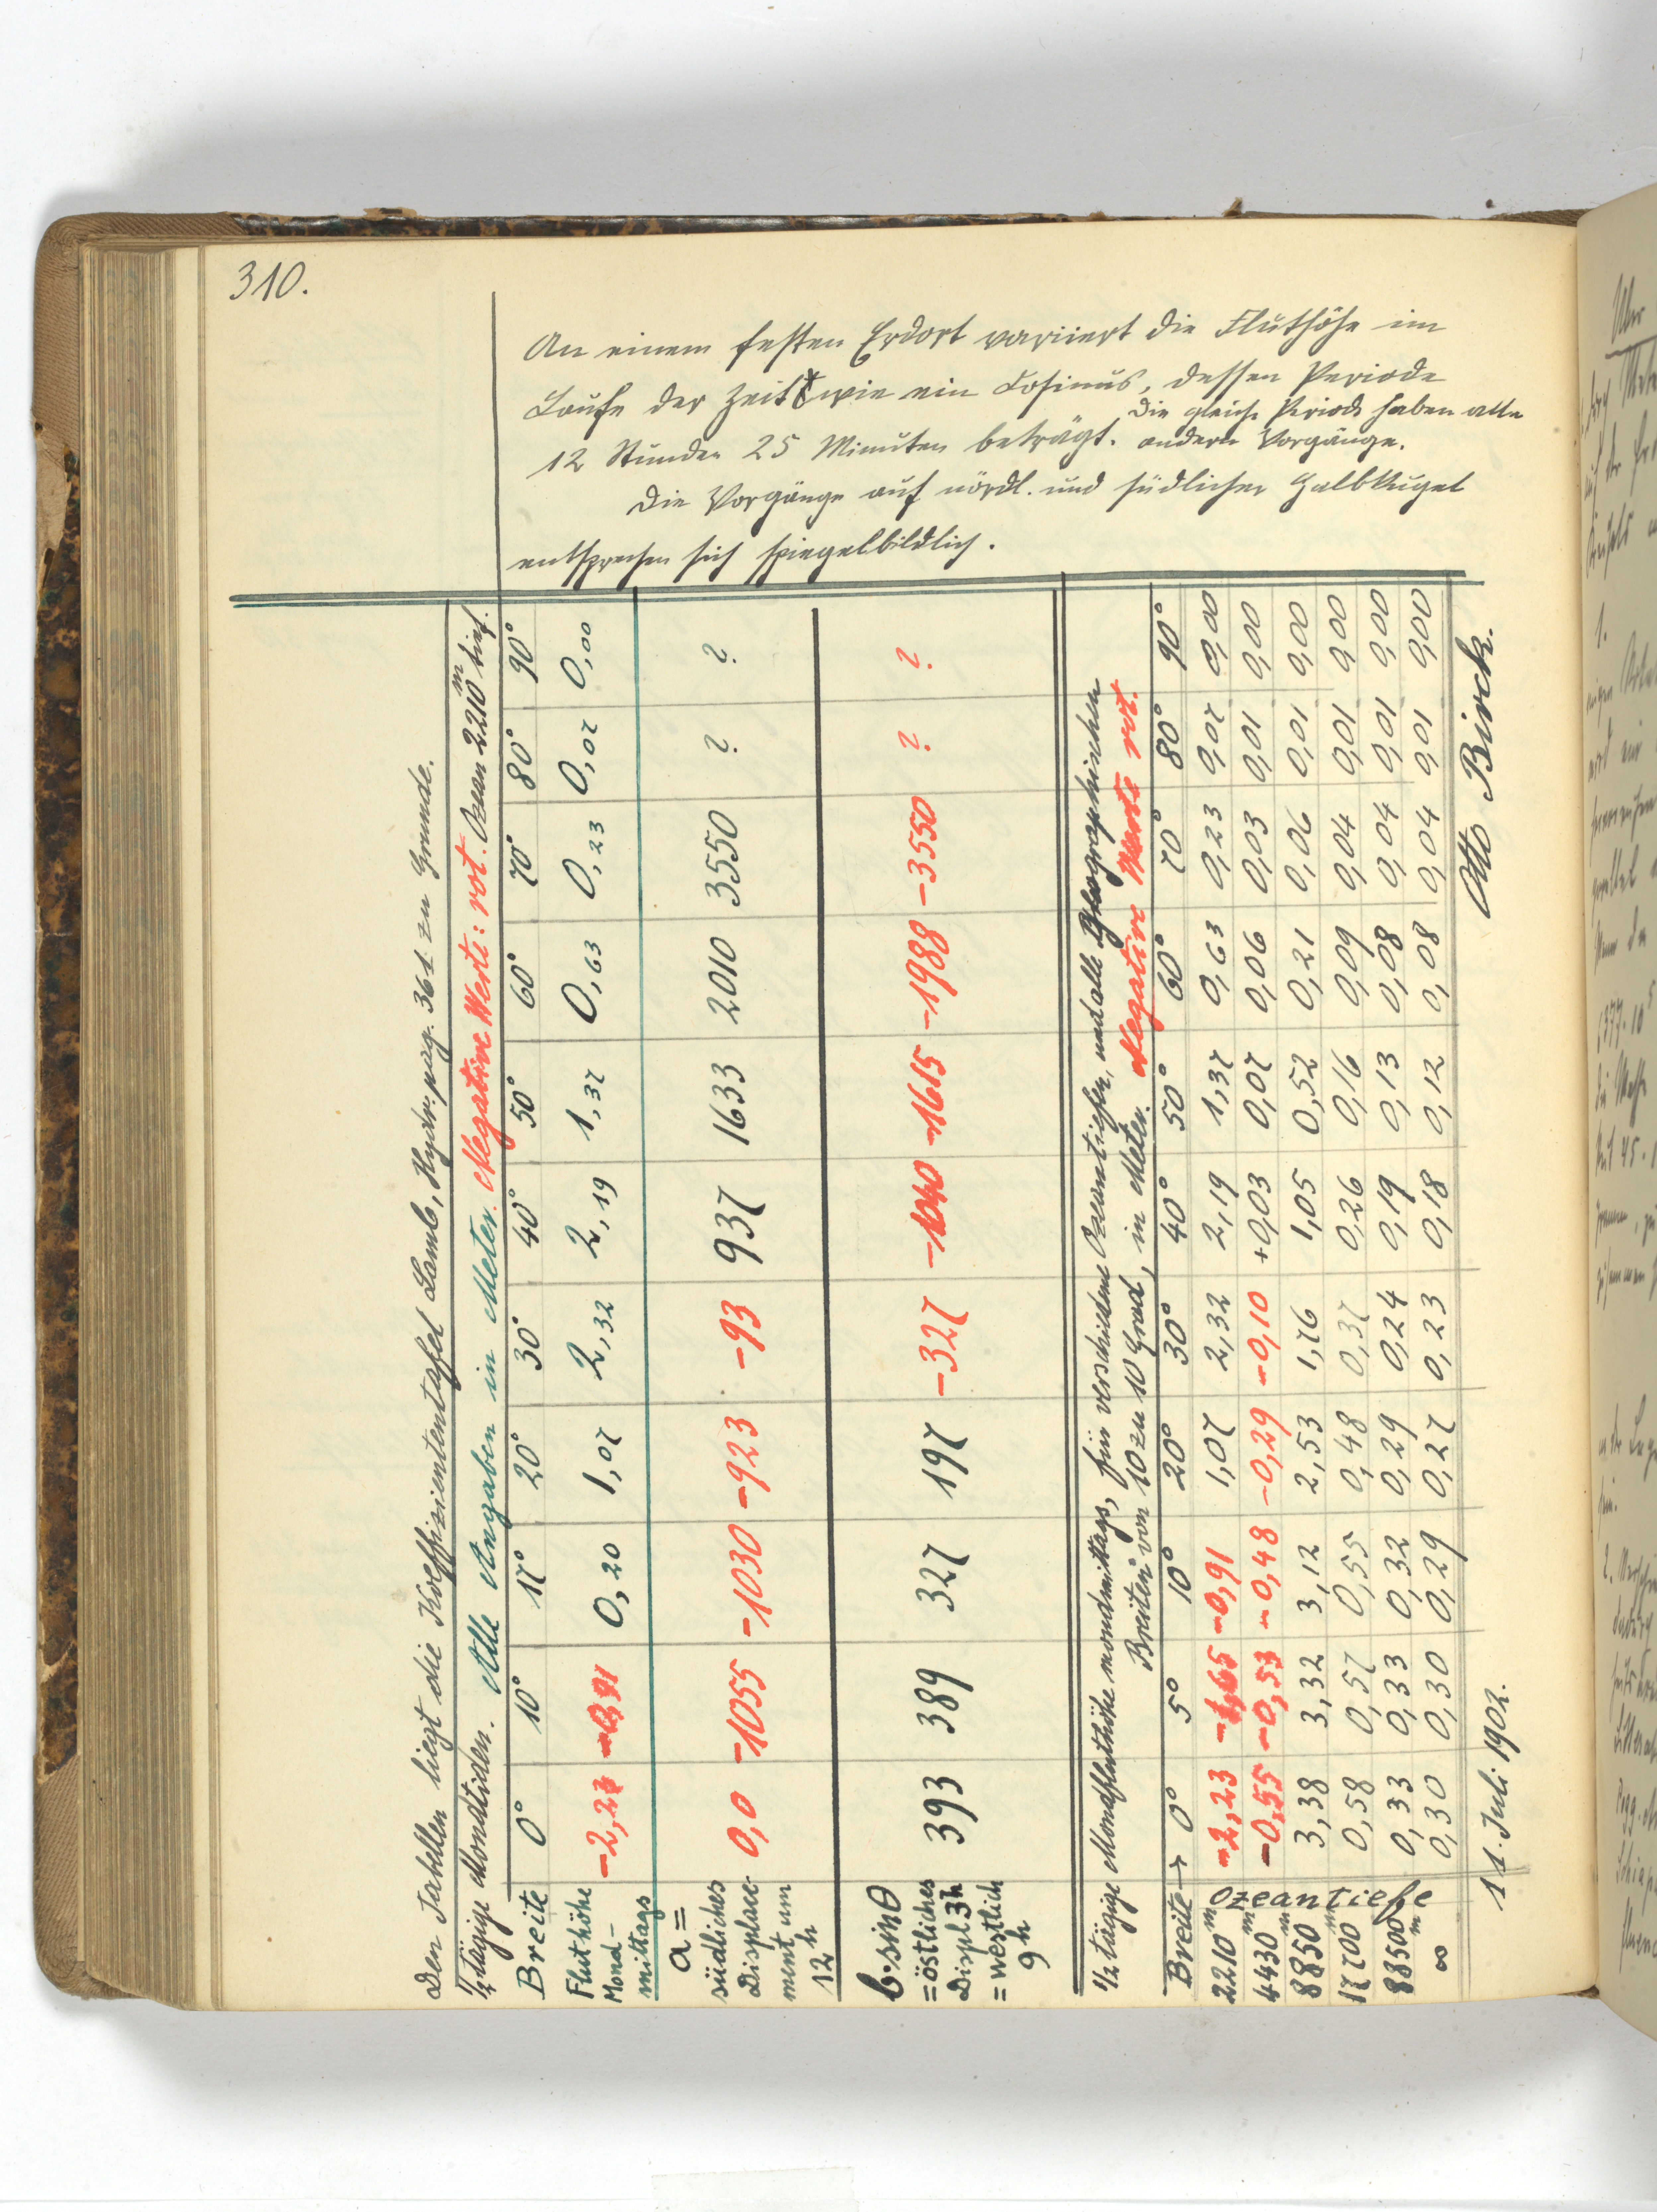 310.
An einem festen Erdort variiert die Fluthöhe im
Laufe der Zeit wie ein Cosinus, dessen Periode
12 Stunden 25 Minuten beträgt. Die gleiche Periode haben alle
andern Vorgänge.
Die Vorgänge auf nördl. und südlicher Halbkugel
entsprechen sich spiegelbildlich.
Den Tabellen liegt die Koeffizientientafel Lamb, Hydr. pag. 361 zu Grunde.
½ tägige Mondtiden. Alle Angaben in Meter. Negative Werte: rot. Ozean 2210 m tief.
Breite 0° 10° 17° 20° 30° 40° 50° 60° 70° 80° 90°
Fluthöhe Mond-mittags -2,23 -0,91 0,20 1,07 2,32 2,19 1,37 0,63 0,23 0,07 0,00
a = südliches Displacement um 12 h 0,0 -1055 -1030 -923 -93 937 1633 2010 3550 ? ?
b·sinθ = östliches Displ 3h = westlich 9h 393 389 327 197 -327 -1040 -1615 -1988 -3550 ? ?
½ tägige Mondfluthöhe mondmittags, für verschiedene Ozeantiefen, und alle Geographischen
Breiten von 10 zu 10 Grad, in Meter. Negative Werte rot.
Breite → 0° 5° 10° 20° 30° 40° 50° 60° 70° 80° 90°
Ozeantiefe
2210 m -2,23 -1,65 -0,91 1,07 2,32 2,19 1,37 0,63 0,23 0,07 0,00
4430 m -0,55 -0,53 -0,48 -0,29 -0,10 +0,03 0,07 0,06 0,03 0,01 0,00
8850 m 3,38 3,32 3,12 2,53 1,76 1,05 0,52 0,21 0,06 0,01 0,00
17700 m 0,58 0,57 0,55 0,48 0,37 0,26 0,16 0,09 0,04 0,01 0,00
88500 m 0,33 0,33 0,32 0,29 0,24 0,19 0,13 0,08 0,04 0,01 0,00
∞ 0,30 0,30 0,29 0,27 0,23 0,18 0,12 0,08 0,04 0,01 0,00
11. Juli 1902. Otto Birck.